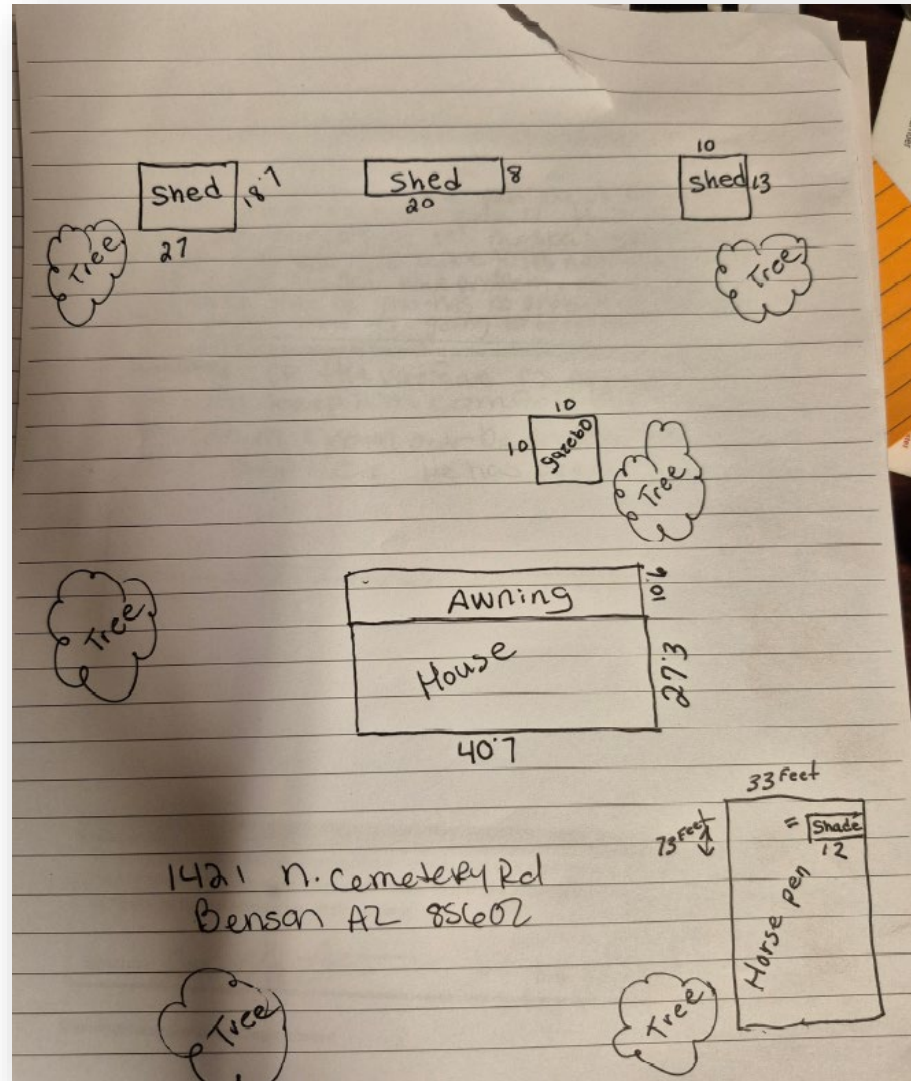 10
Shed
18'7
Shed
8
Shed
13
20
27
Tree
Tree
10
10
gazebo
Tree
Awning
10'6
Tree
House
27'3
40'7
33 Feet
73 Feet
= Shade
12
Horse pen
1421 N. Cemetery Rd
Benson AZ 85602
Tree
Tree